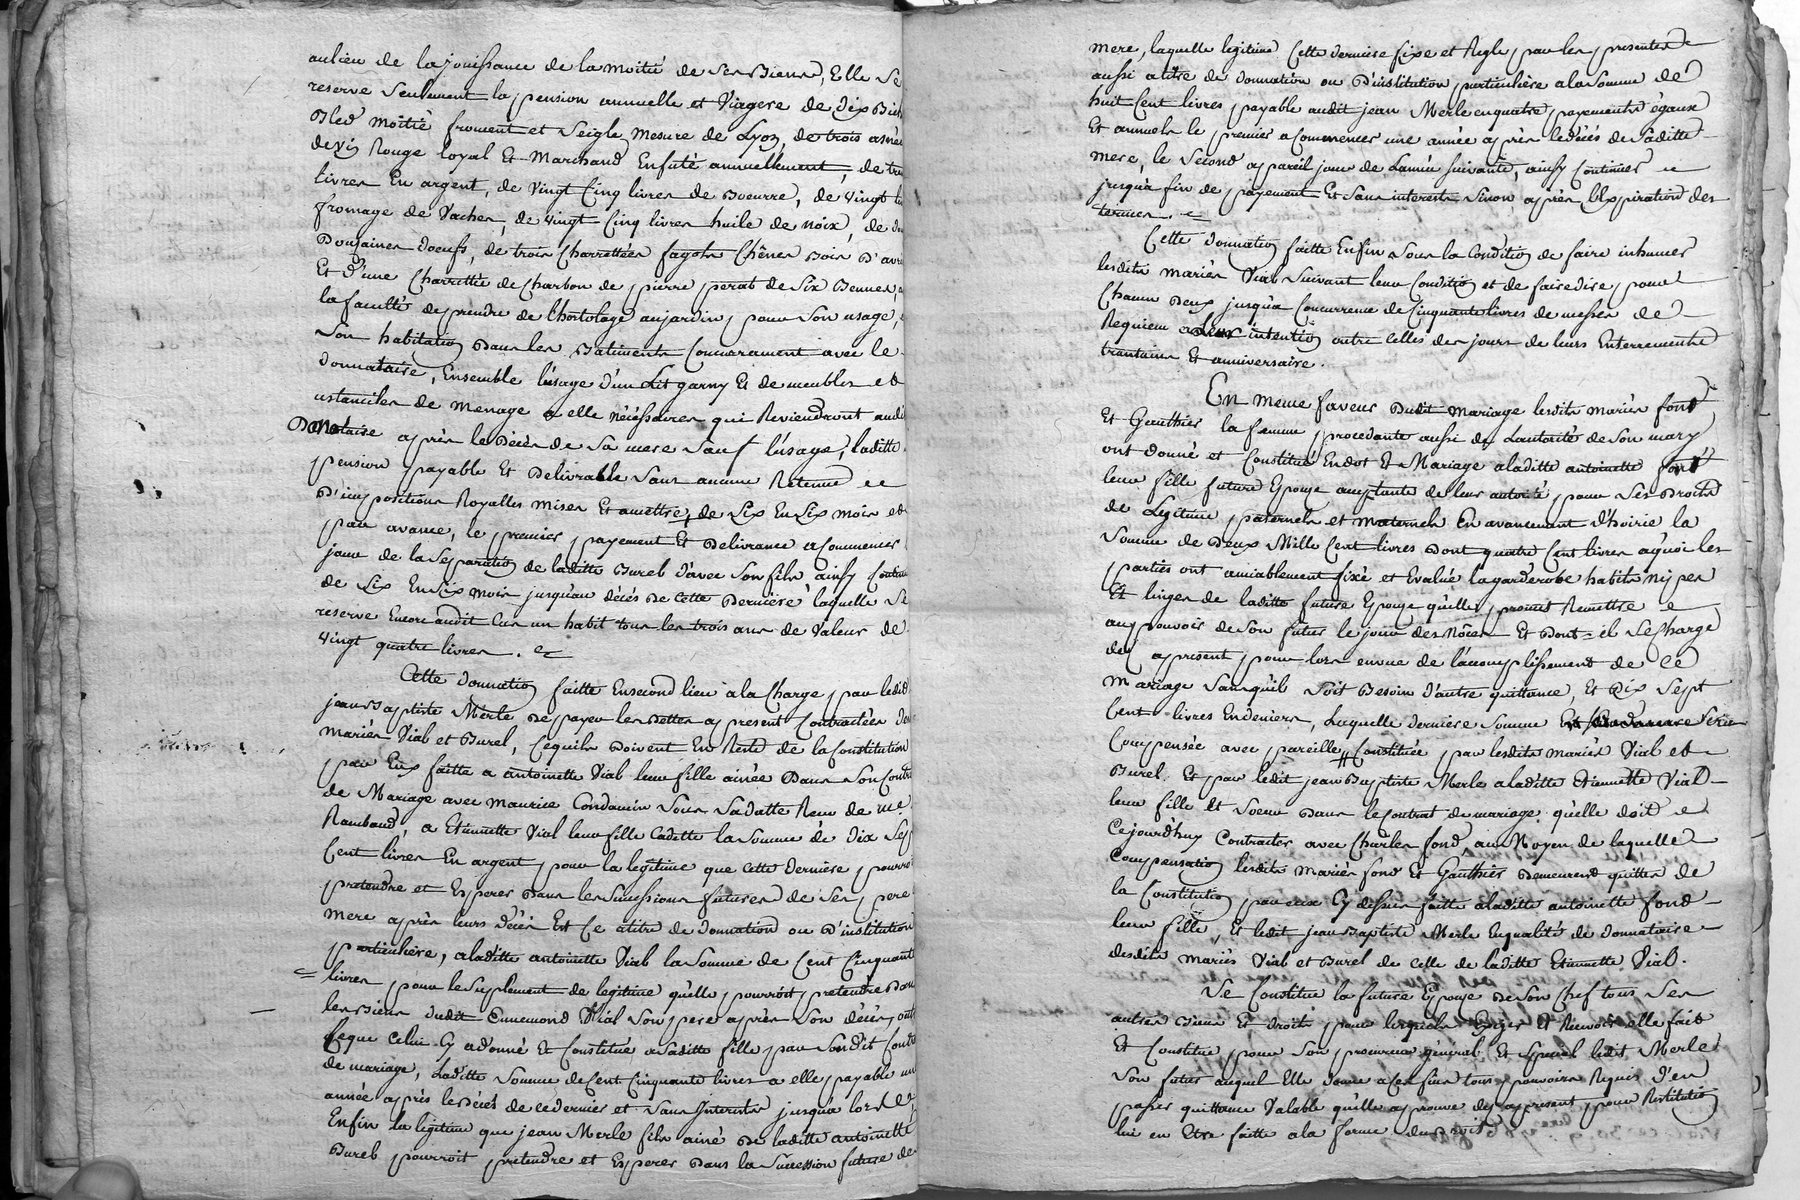 aulieu de la jouissance de la moitié de ses Biens, Elle se
reserve seulement la pension annuelle et viagere de dix
Bled moitié froment et seigle, mesure de Lyon, de trois
de vin Rouge loyal Et marchand Enfuté annuellement, de
livres En argent, de vingt Cinq livres de Boeurre, de vingt
fromage de vaches, de vingt Cinq livres huile de noix, de
Douzaines doeufs, de trois Charrettées fagots Chênes Bois
Et d'une Charrettée de Charbon de pierre perat de six Bennes,
la faculté de prendre de lhortolage au jardin pour son usage,
son habitation dans les Batiments Concurament avec le
donnataire, Ensemble l'usage d'un Lit garny Et de meubles et
ustanciles de menage a elle nécéssaires qui Reviendront audit
Donnataire après le Décès de sa mere sauf l'usage, laditte
pension payable Et Delivrable sans aucune Retenue
D'impositions Royalles mises Et amettre, de six En six mois et
par avance, le premier payement Et Delivrance a Commencer
jour de la Separation de laditte Burel d'avec son fils ainsy
de six En six mois jusqu'au décés de Cette Derniere laquelle se
reserve Encore audit Cas un habit tous les trois ans de valeur de
vingt quatre livres.
Cette donnation faitte En second lieu a la Charge par ledit
jean Baptiste Merle de payer les dettes apresent Contractées
mariés Vial et Burel, Ce quils Doivent En Reste de la Constitution
par Eux faitte a antoinette Vial leur fille ainée dans son
de Mariage avec maurice Condamin sous sa datte Reçu de me
Rambaud, a Etiennette Vial leur fille Cadette la somme de dix sept
Cent livres En argent pour la legitime que Cette derniere
pretendre et Esperer dans les successions futures de ses pere
mere après leurs décès Et Ce atitre de donnation ou d'institution
particuliere, a laditte antoinette Vial la somme de Cent Cinquante
livres pour le suplement de legitime quelle pourroit pretendre
les Biens dudit Ennemond Vial son pere après son décès,
Ceque Celui Cy a donné Et Constitué a saditte fille par sondit
de mariage, laditte somme de Cent Cinquante livres a elle payable
année après le décés de ce dernier et sans Interests jusqu'a lors Et
Enfin la legitime que jean Merle fils ainé de laditte antoinette
Burel pourroit pretendre et Esperer dans la succession future de
mere, laquelle legitime Cette derniere fixe et Regle par les presentes
aussi atitre de donnation ou d'institution particulière a la somme de
huit Cent livres payable audit jean Merle en quatre payements égaux
Et annuels le premier a Commencer une année après le décés de saditte
mere, le second a pareil jour de Lannée suivante, ainsy Continuer
jusqu'a fin de payement Et sans interests sinon après l'Expiration des
termes.
Cette donnation faitte Enfin sous la Condition de faire inhumer
lesdits mariés Vial suivant leur Condition et de faire dire pour
Chacun Deux jusqu'a Concurrence de Cinquante livres de messes de
Requiem a leur intention outre Celles des jours de leurs Enterrements
trantaine Et anniversaire.
En meme faveur dudit mariage lesdits mariés fond
Et Gauthier la femme procedante aussi de Lautorité de son mary
ont donné et Constitué En dot Et Mariage a laditte antoinette fond
leur fille future Epouze acceptante de leur autorité, pour ses Droits
de Legitime paternels et maternels En avancement d'hoirie la
somme de deux Mille Cent livres dont quatre Cent livres a quoi les
parties ont amiablement fixé et Evalué la garderobe habits nipes
Et linges de laditte future Epouze qu'elle promet Remettre
au pouvoir de son futur le jour des nôces Et dont il se Charge
des apresent pour lors en vue de l'accomplissement de ce
mariage sans qu'il soit Besoin d'autre quittance, Et dix sept
Cent livres En deniers, laquelle derniere somme
Compensée avec pareille Constituée par lesdits mariés Vial et
Burel. Et par ledit jean Baptiste Merle a laditte Etiennette Vial
leur fille Et soeur dans le Contrat de mariage quelle doit
Cejourd'huy Contracter avec Charles fond, au Moyen de laquelle
Compensation lesdits mariés fond Et Gauthier demeurent quittes de
la Constitution par eux Cy dessus faitte a laditte antoinette fond
leur fille, Et ledit jean Baptiste Merle En qualité de donnataire
desdits mariés Vial et Burel de Celle de laditte Etiennette Vial.
Se Constitue la future Epouze de son Chef tous ses
autres Biens Et droits pour lesquels Exiger Et Recevoir elle fait
Et Constitue pour son procureur général Et special ledit Merle
son futur auquel Elle donne a ces fins tous pouvoirs Requis d'en
passer quittance Valable qu'elle approuve des apresent pour Restitution
lui en Etre faitte a la forme du droit